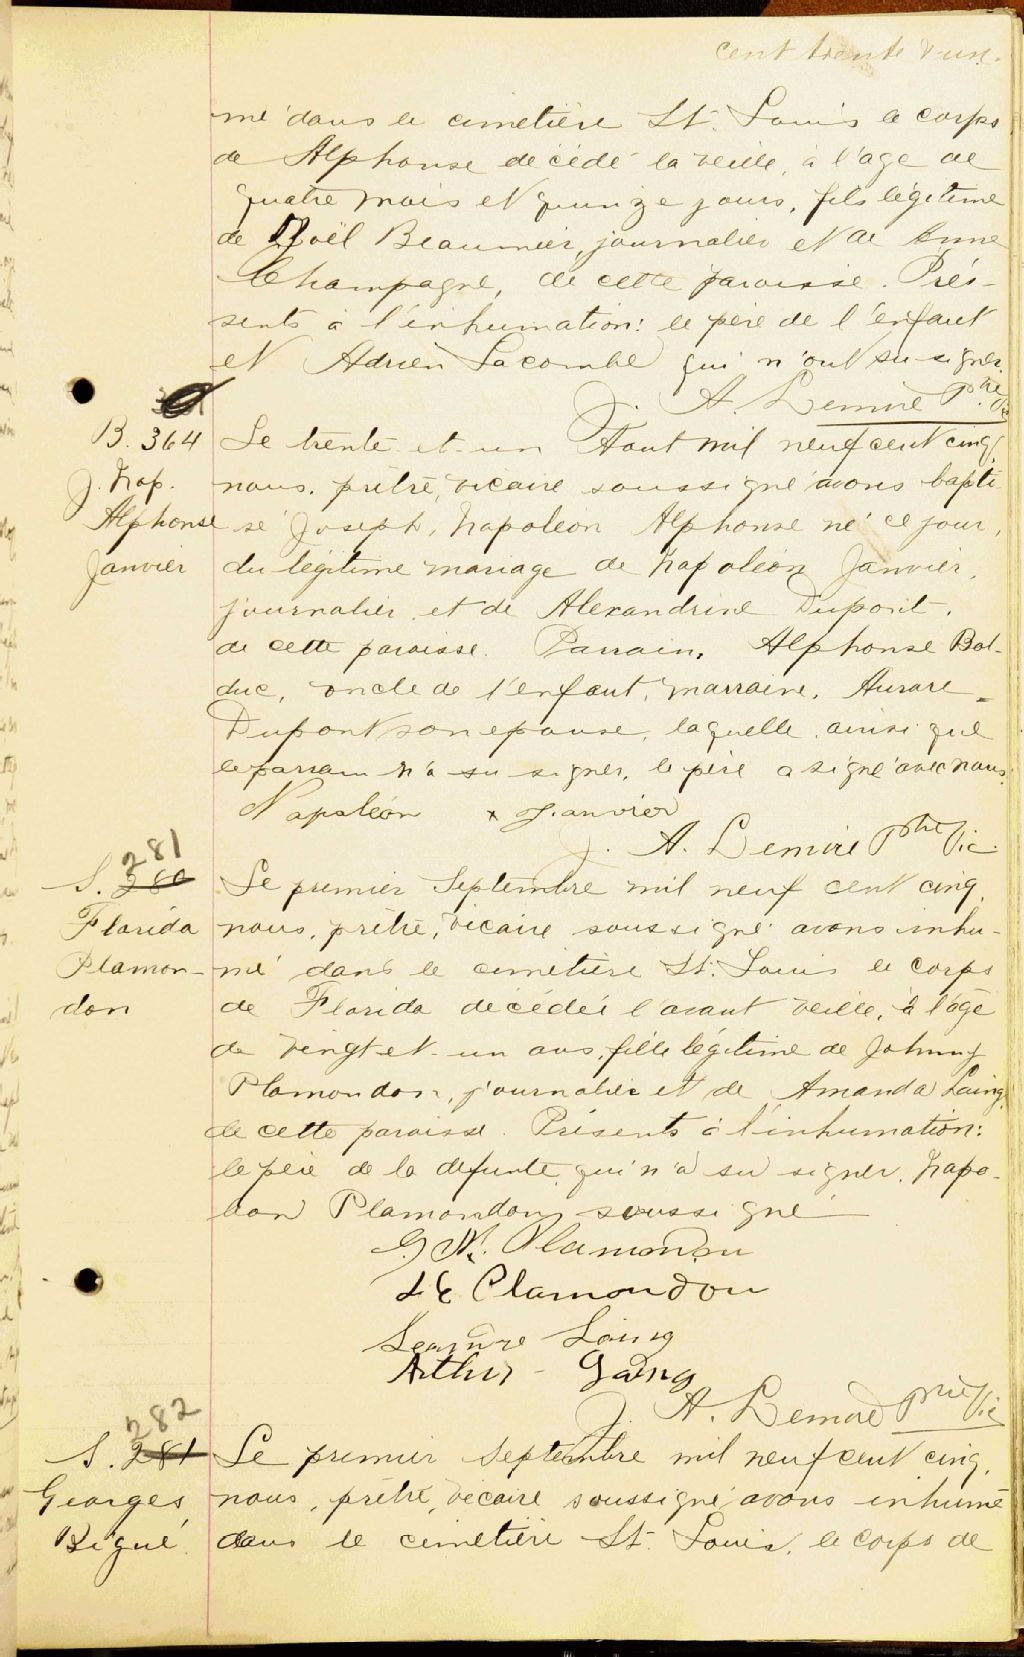 cent trente & un.
mé dans le cimetière St. Louis le corps
de Alphonse décédé la veille, à l'age de
quatre mois et quinze jours, fils légitime
de Noël Beaumier, journalier et de Anne
Champagne, de cette paroisse. Pré-
sents à l'inhumation: le père de l'enfant
et Adrien Lacombe qui n'ont su signer.
J. A. Lemire Ptre Vic
B. 364
J. Nap.
Alphonse
Janvier
Le trente-et-un Aout mil neuf cent cinq,
nous, prêtre, vicaire soussigné avons bapti-
sé Joseph, Napoléon Alphonse né ce jour,
du légitime mariage de Napoléon Janvier,
journalier et de Alexandrine Dupont,
de cette paroisse. Parrain, Alphonse Bol-
duc, oncle de l'enfant, marraine, Aurore
Dupont son epouse, laquelle ainsi que
le parrain n'a su signer, le père a signé avec nous.
Napoléon x Janvier
J. A. Lemire Ptre Vic.
281
S. 280
Florida
Plamon-
don
Le premier Septembre mil neuf cent cinq,
nous, prêtre, vicaire soussigné avons inhu-
mé dans le cimetière St. Louis le corps
de Florida décédée l'avant veille, à l'âge
de vingt-et-un ans, fille légitime de Johnny
Plamondon, journalier et de Amanda Laing,
de cette paroisse Présents à l'inhumation:
le père de la defunte qui n'a su signer, Napo-
léon Plamondon soussigné
Plamondon
Plamondon
Laing
Arthur Gaing
J. A. Lemire Ptre Vic
282
S. 281
Georges
Bigué
Le premier Septembre mil neuf cent cinq,
nous, prêtre, vicaire soussigné avons inhumé
dans le cimetière St. Louis, le corps de